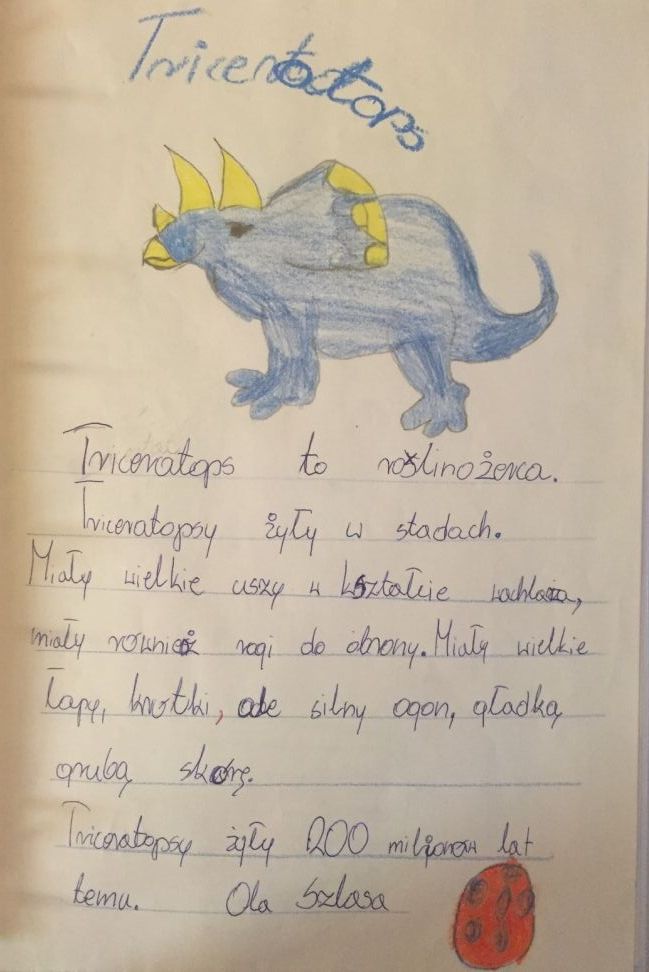 Triceratops
Triceratops to roślinożerca.
Triceratopsy żyły w stadach.
Miały wielkie uszy w kształcie wachlarza,
miały rownież rogi do obrony. Miały wielkie
łapy, krutki, ale silny ogon, gładką
grubą skórę.
Triceratopsy żyły 200 milionów lat
temu. Ola Szlasa